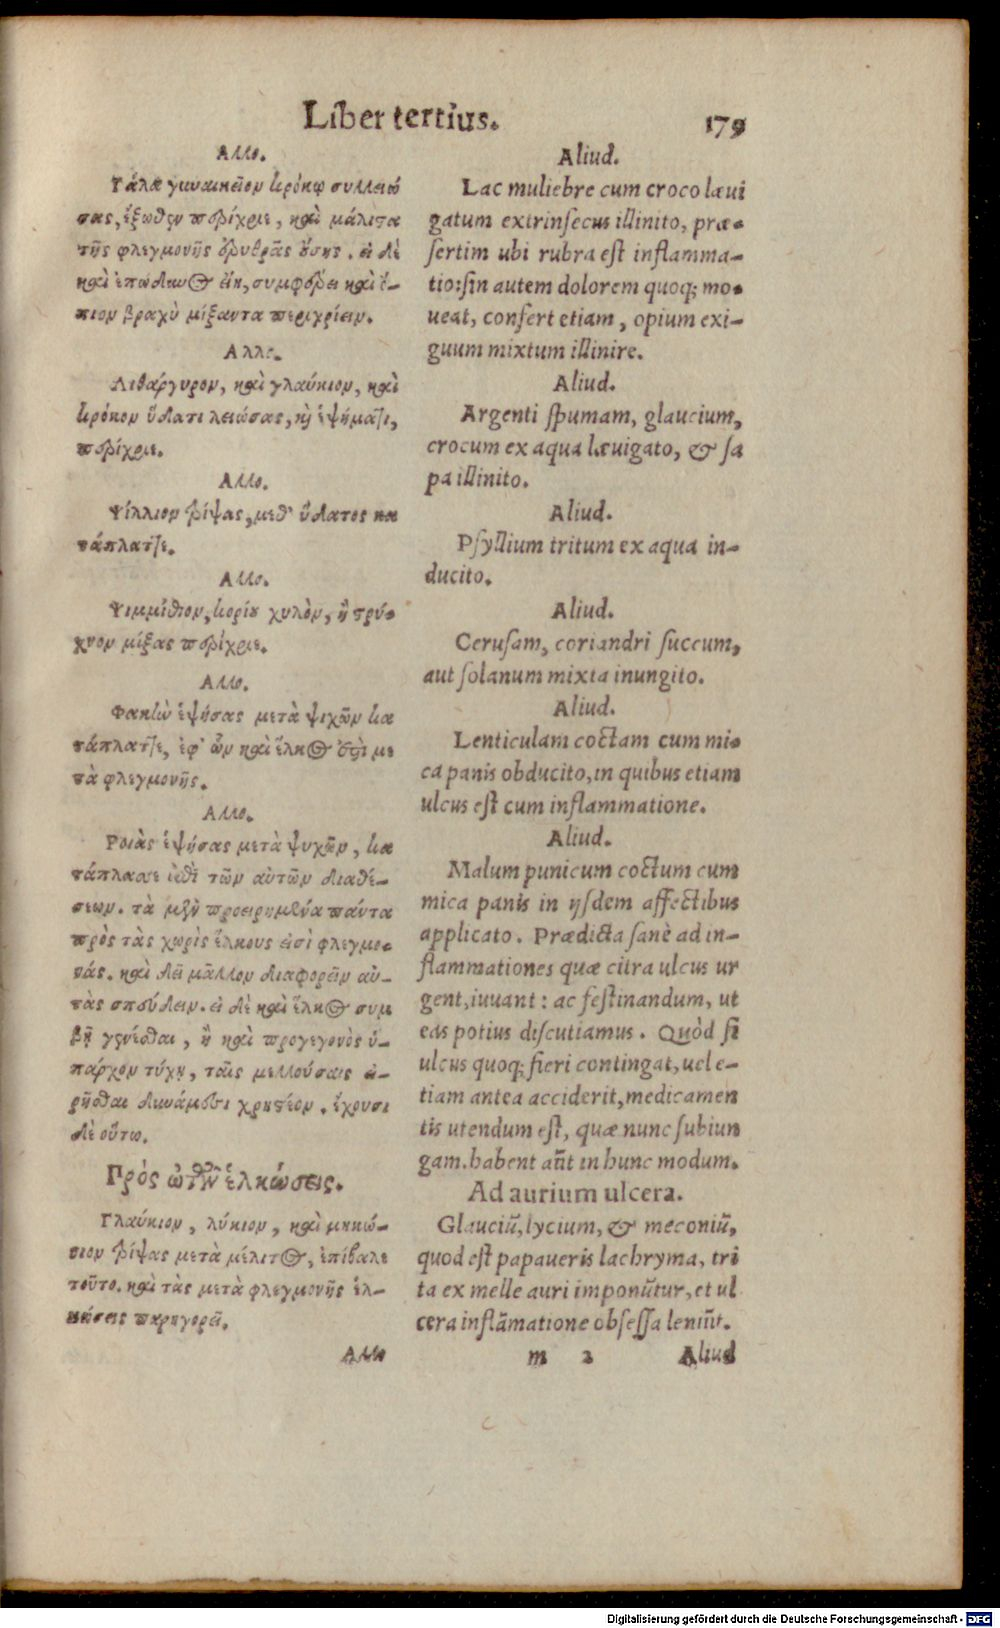 Liber tertius. 179
Αλλο.
Γάλα γυναικεῖον κρόκῳ συλλειώ
σας, ἔξωθεν πρόσχριε, καὶ μάλιστα
τῆς φλεγμονῆς ἐρυθρᾶς οὔσης. εἰ δὲ
καὶ ἐπώδυνος εἴη, συμφέρει καὶ ὄ-
πιον βραχὺ μίξαντα περιχρίειν.
Αλλο.
Λιθάργυρον, καὶ γλαύκιον, καὶ
κρόκον ὕδατι λειώσας, καὶ ἑψήματι,
πρόσχριε.
Αλλο.
Ψίλλιον τρίψας, μεθ' ὕδατος κα
τάπλαττε.
Αλλο.
Ψιμμίθιον, κορίου χυλὸν, ἢ στρύ-
χνον μίξας πρόσχριε.
Αλλο.
Φακὴν ἑψήσας μετὰ ψιχῶν κα
τάπλαττε, ἐφ' ὧν καὶ ἕλκος ἐστὶ με
τὰ φλεγμονῆς.
Αλλο.
Ροιὰς ἑψήσας μετὰ ψυχῶν, κα
τάπλασσε ἐπὶ τῶν αὐτῶν διαθέ-
σεων. τὰ μὲν προειρημένα πάντα
πρὸς τὰς χωρὶς ἕλκους εἰσὶ φλεγμο-
νάς. καὶ δεῖ μᾶλλον διαφορεῖν αὐ-
τὰς σπεύδειν. εἰ δὲ καὶ ἕλκος συμ
βῇ γενέσθαι, ἢ καὶ προγεγονὸς ὑ-
πάρχον τύχῃ, ταῖς μελλούσαις εἰ-
ρῆσθαι δυνάμεσι χρηστέον. ἔχουσι
δὲ οὕτω.
Πρὸς ὤτων ἑλκώσεις.
Γλαύκιον, λύκιον, καὶ μηκώ-
νιον τρίψας μετὰ μέλιτος, ἐπίβαλε
τοῦτο. καὶ τὰς μετὰ φλεγμονῆς ἑλ-
κώσεις παρηγορεῖ.
Αλλο
Aliud.
Lac muliebre cum croco læui
gatum extrinsecus illinito, præ-
sertim ubi rubra est inflamma-
tio: sin autem dolorem quoq; mo-
ueat, confert etiam, opium exi-
guum mixtum illinire.
Aliud.
Argenti spumam, glaucium,
crocum ex aqua læuigato, & sa
pa illinito.
Aliud.
Psyllium tritum ex aqua in-
ducito.
Aliud.
Cerusam, coriandri succum,
aut solanum mixta inungito.
Aliud.
Lenticulam coctam cum mi-
ca panis obducito, in quibus etiam
ulcus est cum inflammatione.
Aliud.
Malum punicum coctum cum
mica panis in ijsdem affectibus
applicato. Prædicta sanè ad in-
flammationes quæ citra ulcus ur
gent, iuuant: ac festinandum, ut
eas potius discutiamus. Quòd si
ulcus quoq; fieri contingat, uel e-
tiam antea acciderit, medicamen
tis utendum est, quæ nunc subiun
gam. habent aūt in hunc modum.
Ad aurium ulcera.
Glauciū, lycium, & meconiū,
quod est papaueris lachryma, tri
ta ex melle auri imponūtur, et ul
cera inflāmatione obsessa leniūt.
m 2 Aliud
Digitalisierung gefördert durch die Deutsche Forschungsgemeinschaft - DFG